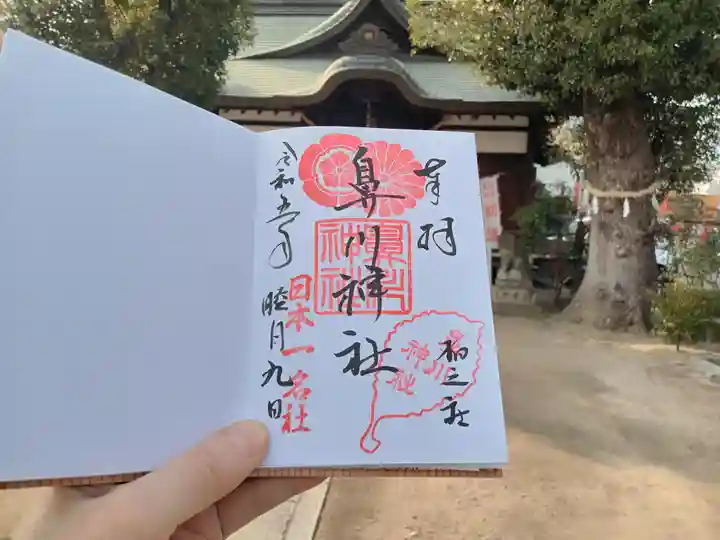 奉拝
柏三社
鼻川神社
鼻川神社
神社
日本一名社
令和五年
睦月九日